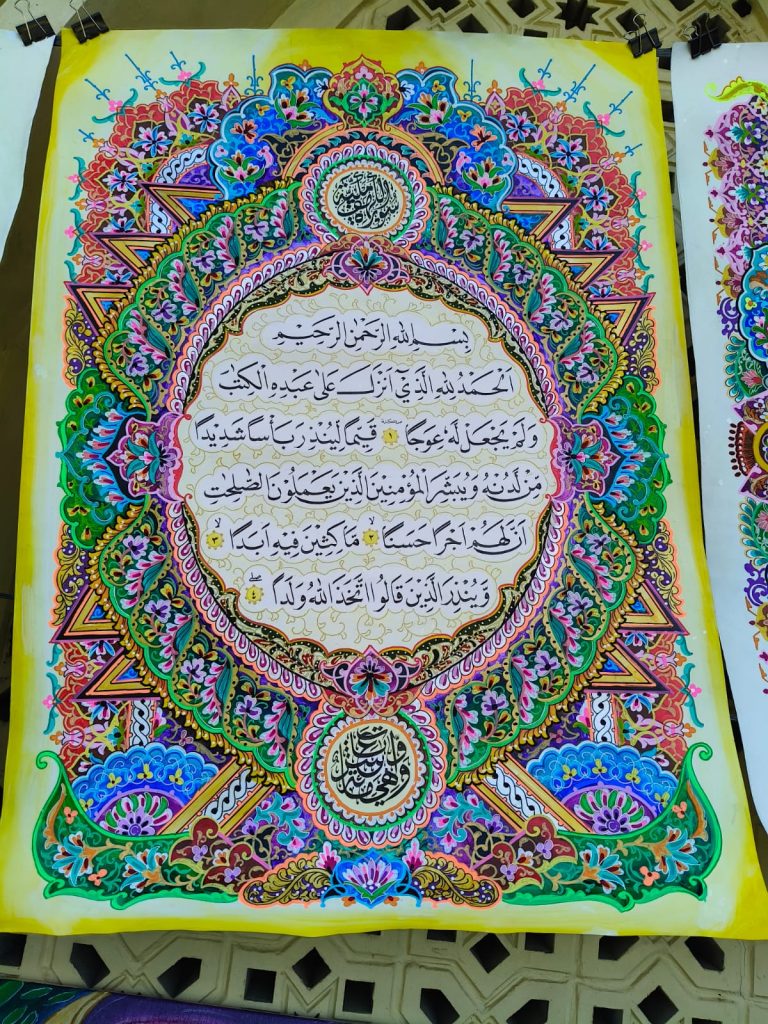 بِسْمِ اللهِ الرَّحْمٰنِ الرَّحِيْمِ
اَلْحَمْدُ لِلّٰهِ الَّذِيْٓ اَنْزَلَ عَلٰى عَبْدِهِ الْكِتٰبَ
وَلَمْ يَجْعَلْ لَّهٗ عِوَجًا ١ قَيِّمًا لِّيُنْذِرَ بَأْسًا شَدِيْدًا
مِّنْ لَّدُنْهُ وَيُبَشِّرَ الْمُؤْمِنِيْنَ الَّذِيْنَ يَعْمَلُوْنَ الصّٰلِحٰتِ
اَنَّ لَهُمْ اَجْرًا حَسَنًا ٢ مَّاكِثِيْنَ فِيْهِ اَبَدًا ٣
وَّيُنْذِرَ الَّذِيْنَ قَالُوا اتَّخَذَ اللهُ وَلَدًا ٤